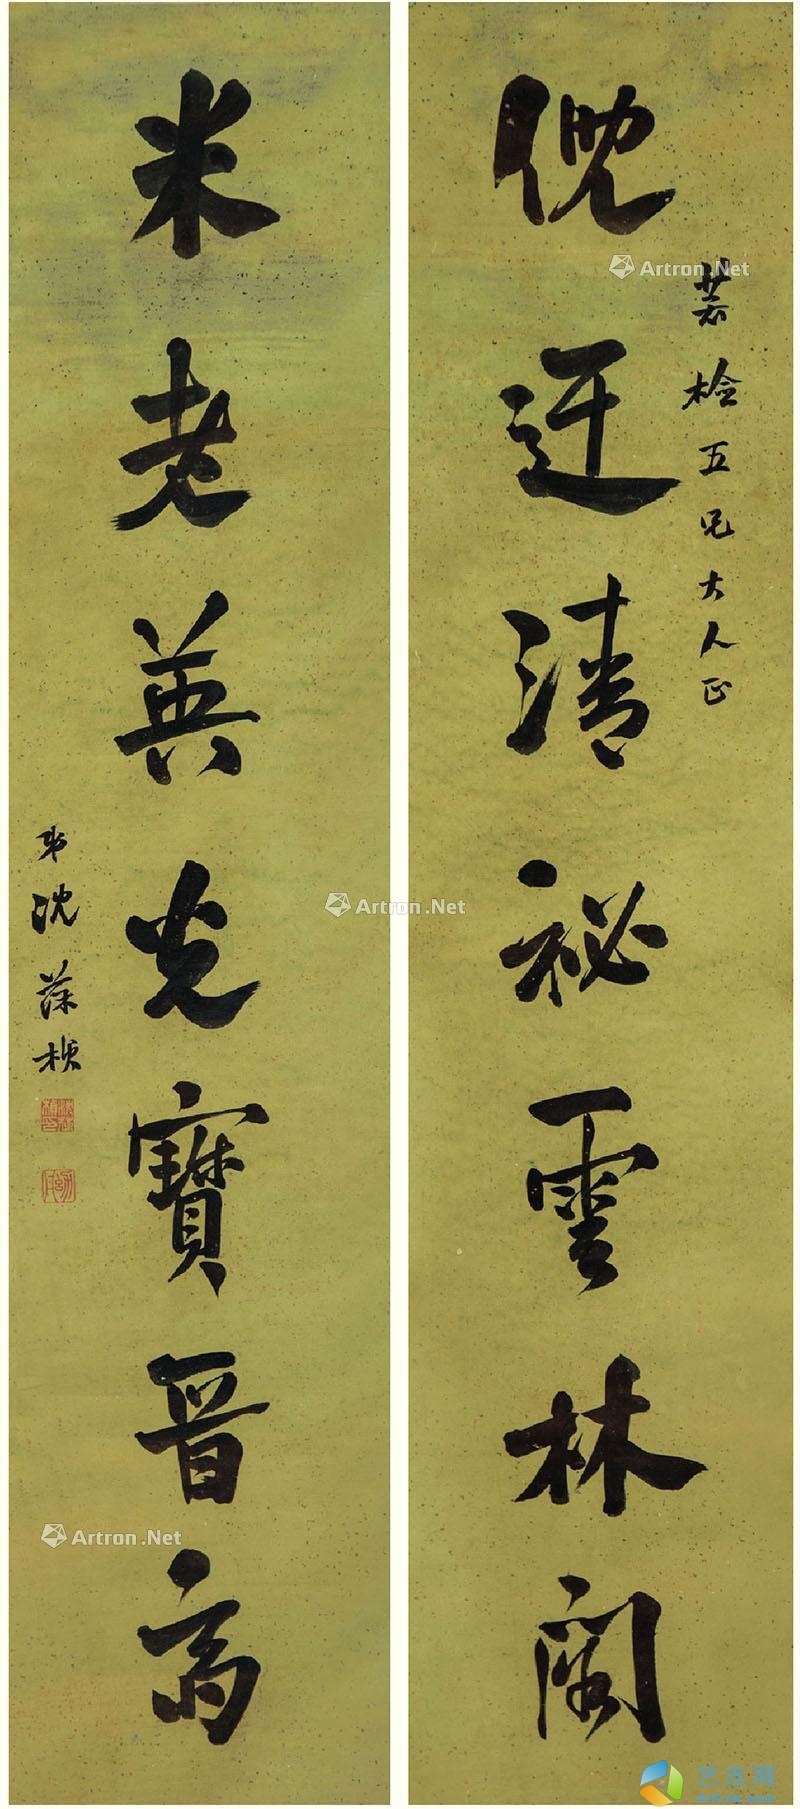 倪迂清祕雲林閣
若檢五兄大人正
米老英光寶晉齋
弟沈葆楨
Artron.Net
Artron.Net
Artron.Net
艺连网
ArtLnk.com